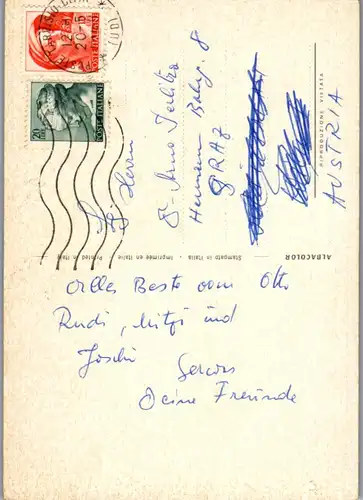 POSTE ITALIANE
POSTE ITALIANE
20
20-15
Herrn
Hermann Bahrg. 8
GRAZ
AUSTRIA
RIPRODUZIONE VIETATA
ALBACOLOR
Stampato in Italia - Imprimée en Italie - Printed in Italy
Alles Beste vom Otto
Rudi, Mitzi und
Joschi
Servus
Deine Freunde